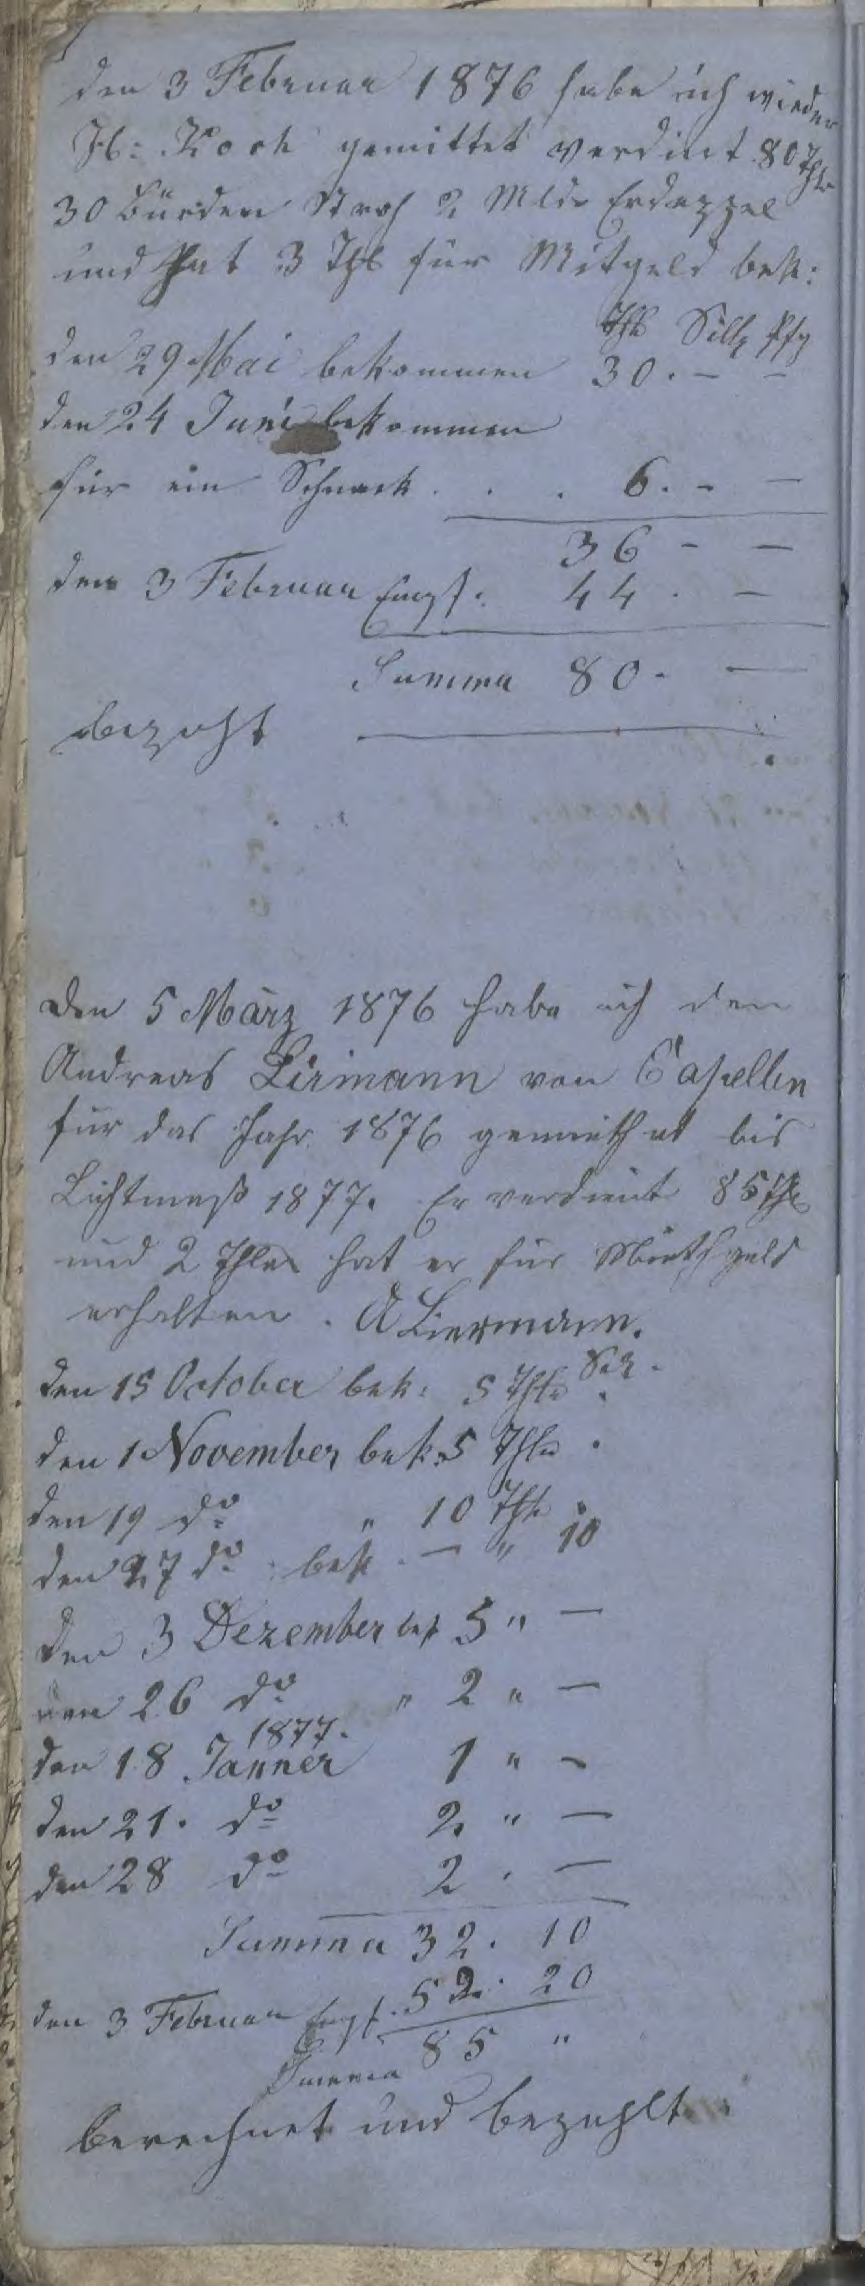 den 3 Februar 1876 habe ich wieder
Hb: Koch gemittet verdint 80 Thlr
30 Bürden Stroh 2 Mldr Erdappel
und hat 3 Thl für Mitgeld bek:
Thl Silbg Pfg
den 29 Mai bekommen 30 . - -
den 24 Juni bekommen
für ein Schwert . . . 6 . - -
36 - -
den 3 Februar Empf: 44 . -
Summa 80 - -
bezaht
den 5 März 1876 habe ich den
Andreas Liermann von Capellen
für das Jahr 1876 gemiethet bis
Lichtmeß 1877. Er verdient 85 Thl
und 2 Thler hat er für Miethgeld
erhalten. A Liermann.
den 15 October bek: 5 Thlr Sgr .
den 1 November bek: 5 Thlr .
den 19 do " 10 Thlr .
den 27 do bek . - " 10
den 3 Dezember bek 5 " -
den 26 do " 2 " -
1877.
den 18 Janner 1 " -
den 21. do 2 " -
den 28 do 2 . -
Summa 32 . 10
den 3 Februar Empf. 52 . 20
Summa 85 "
berechnet und bezahlt.